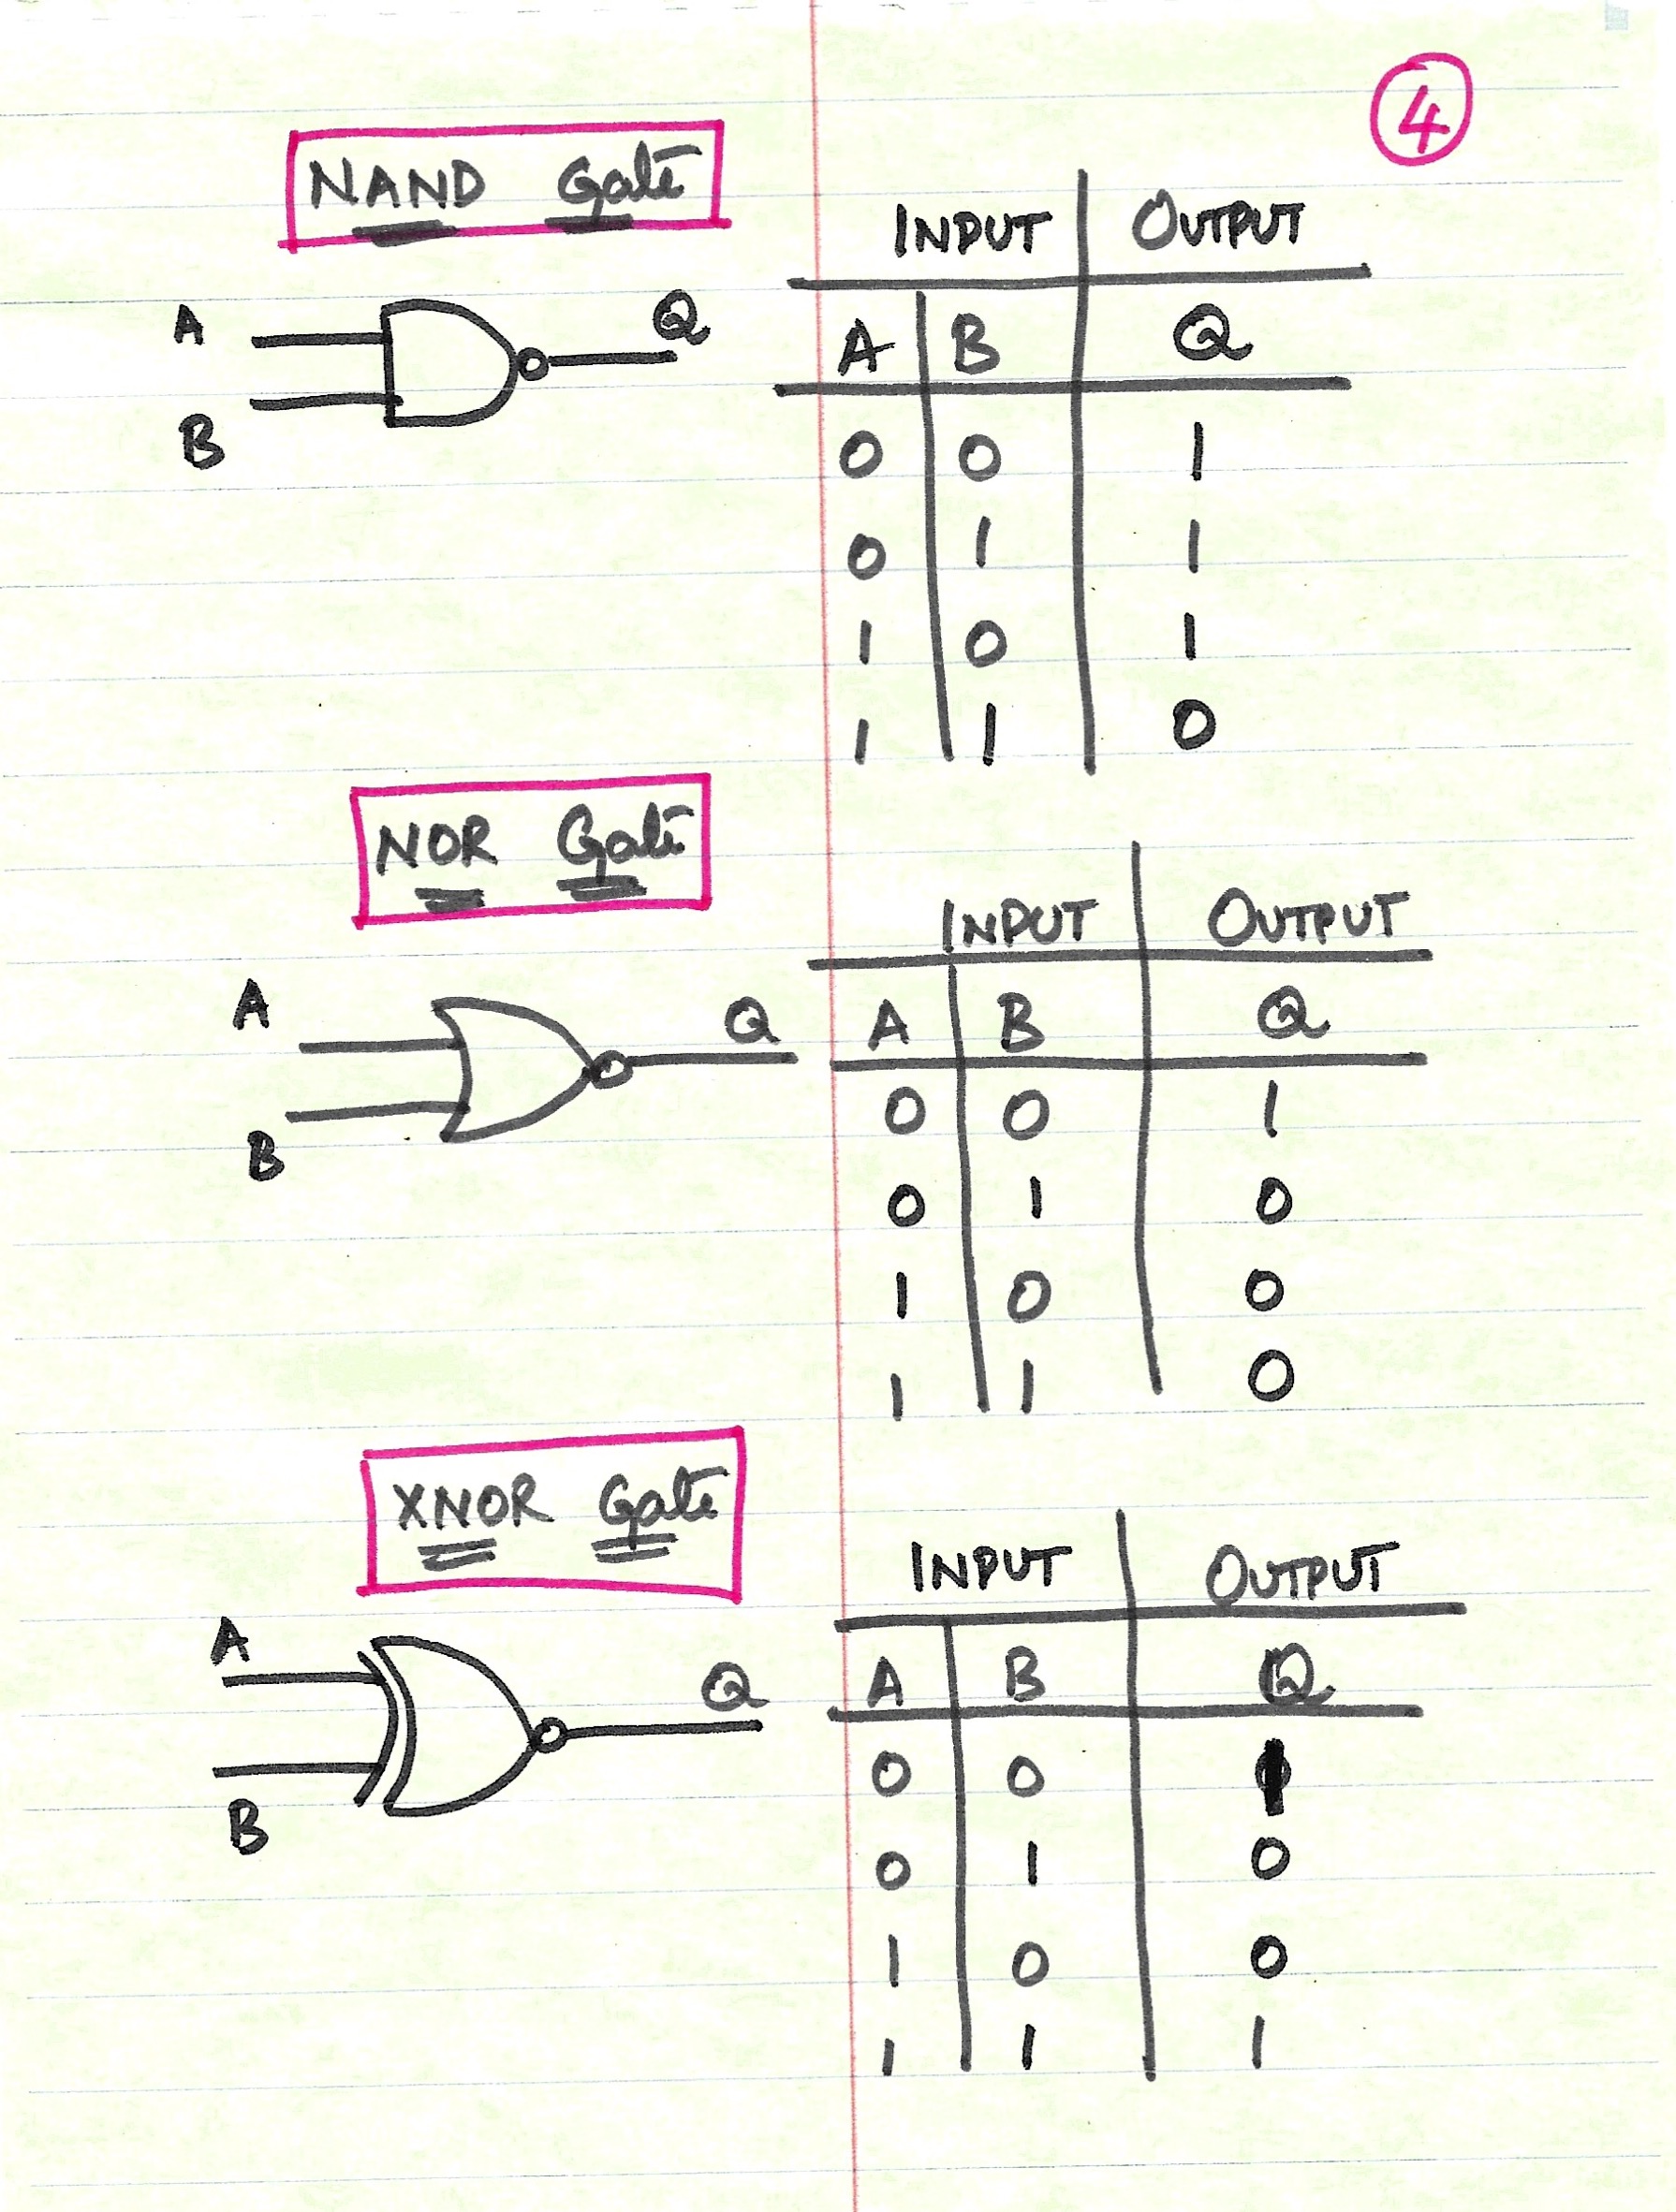 4
NAND Gate
INPUT OUTPUT
A Q
A B Q
B
0 0 1
0 1 1
1 0 1
1 1 0
NOR Gate
INPUT OUTPUT
A Q
A B Q
B
0 0 1
0 1 0
1 0 0
1 1 0
XNOR Gate
INPUT OUTPUT
A Q
A B Q
B
0 0 1
0 1 0
1 0 0
1 1 1